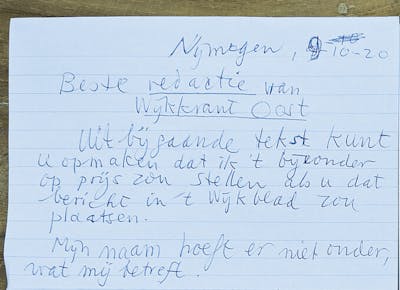 Nijmegen, 9-10-20
Beste redactie van
Wijkkrant Oost
Uit bijgaande tekst kunt
u opmaken dat ik 't bijzonder
op prijs zou stellen als u dat
bericht in 't Wijkblad zou
plaatsen.
Mijn naam hoeft er niet onder,
wat mij betreft.